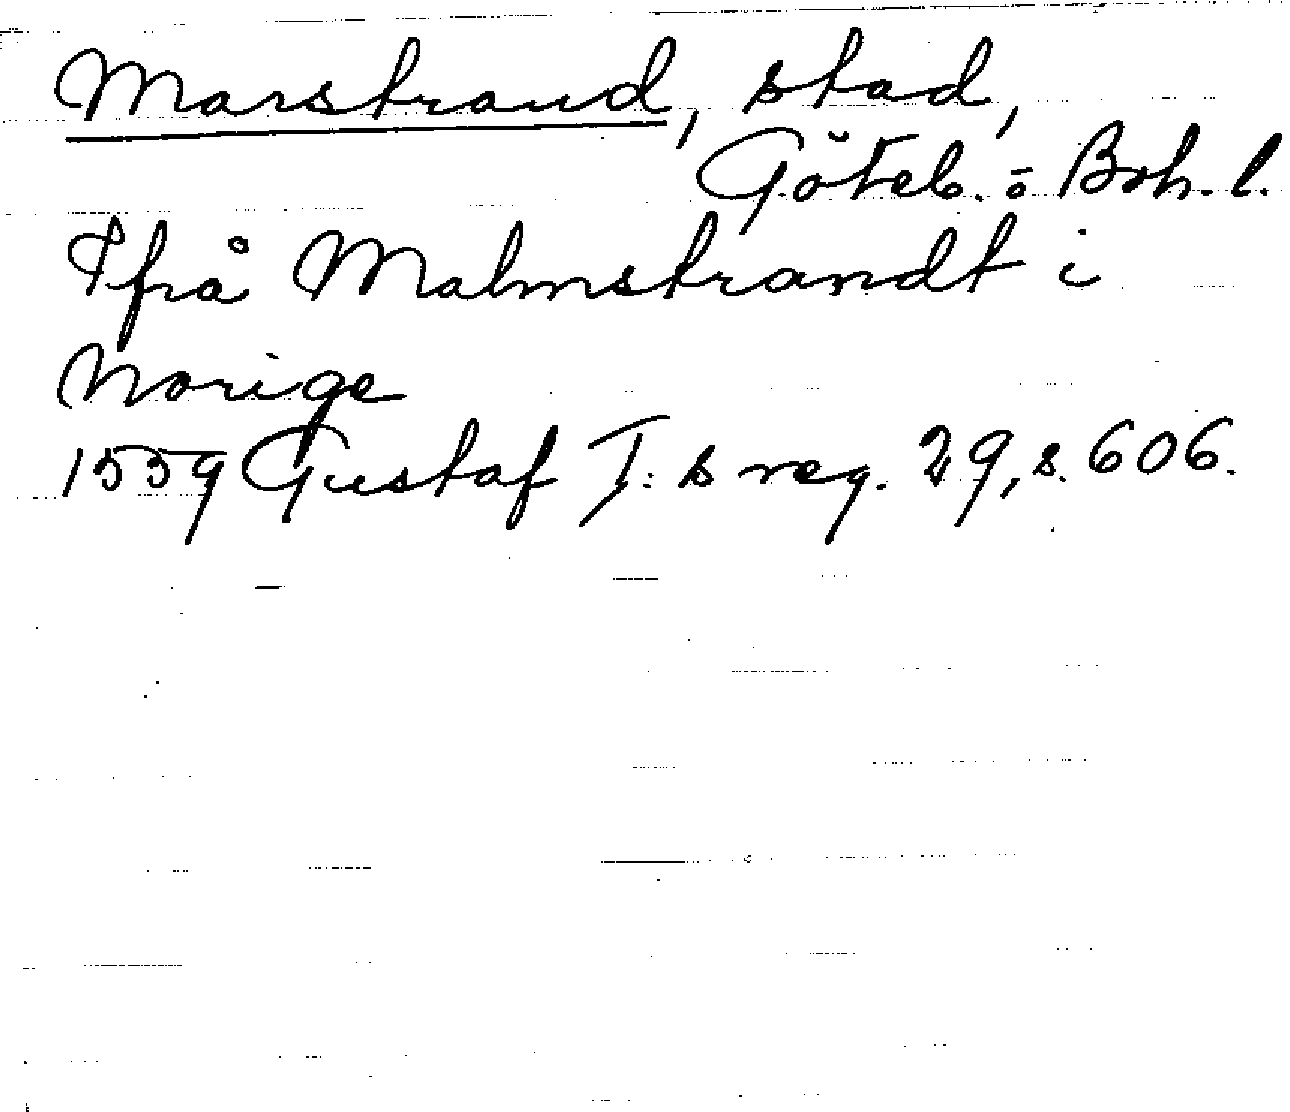 Marstrand, stad,
Göteb. o Boh. l.
Ifrå Malmstrandt i
Norige
1559 Gustaf I:s reg. 29, s. 606.